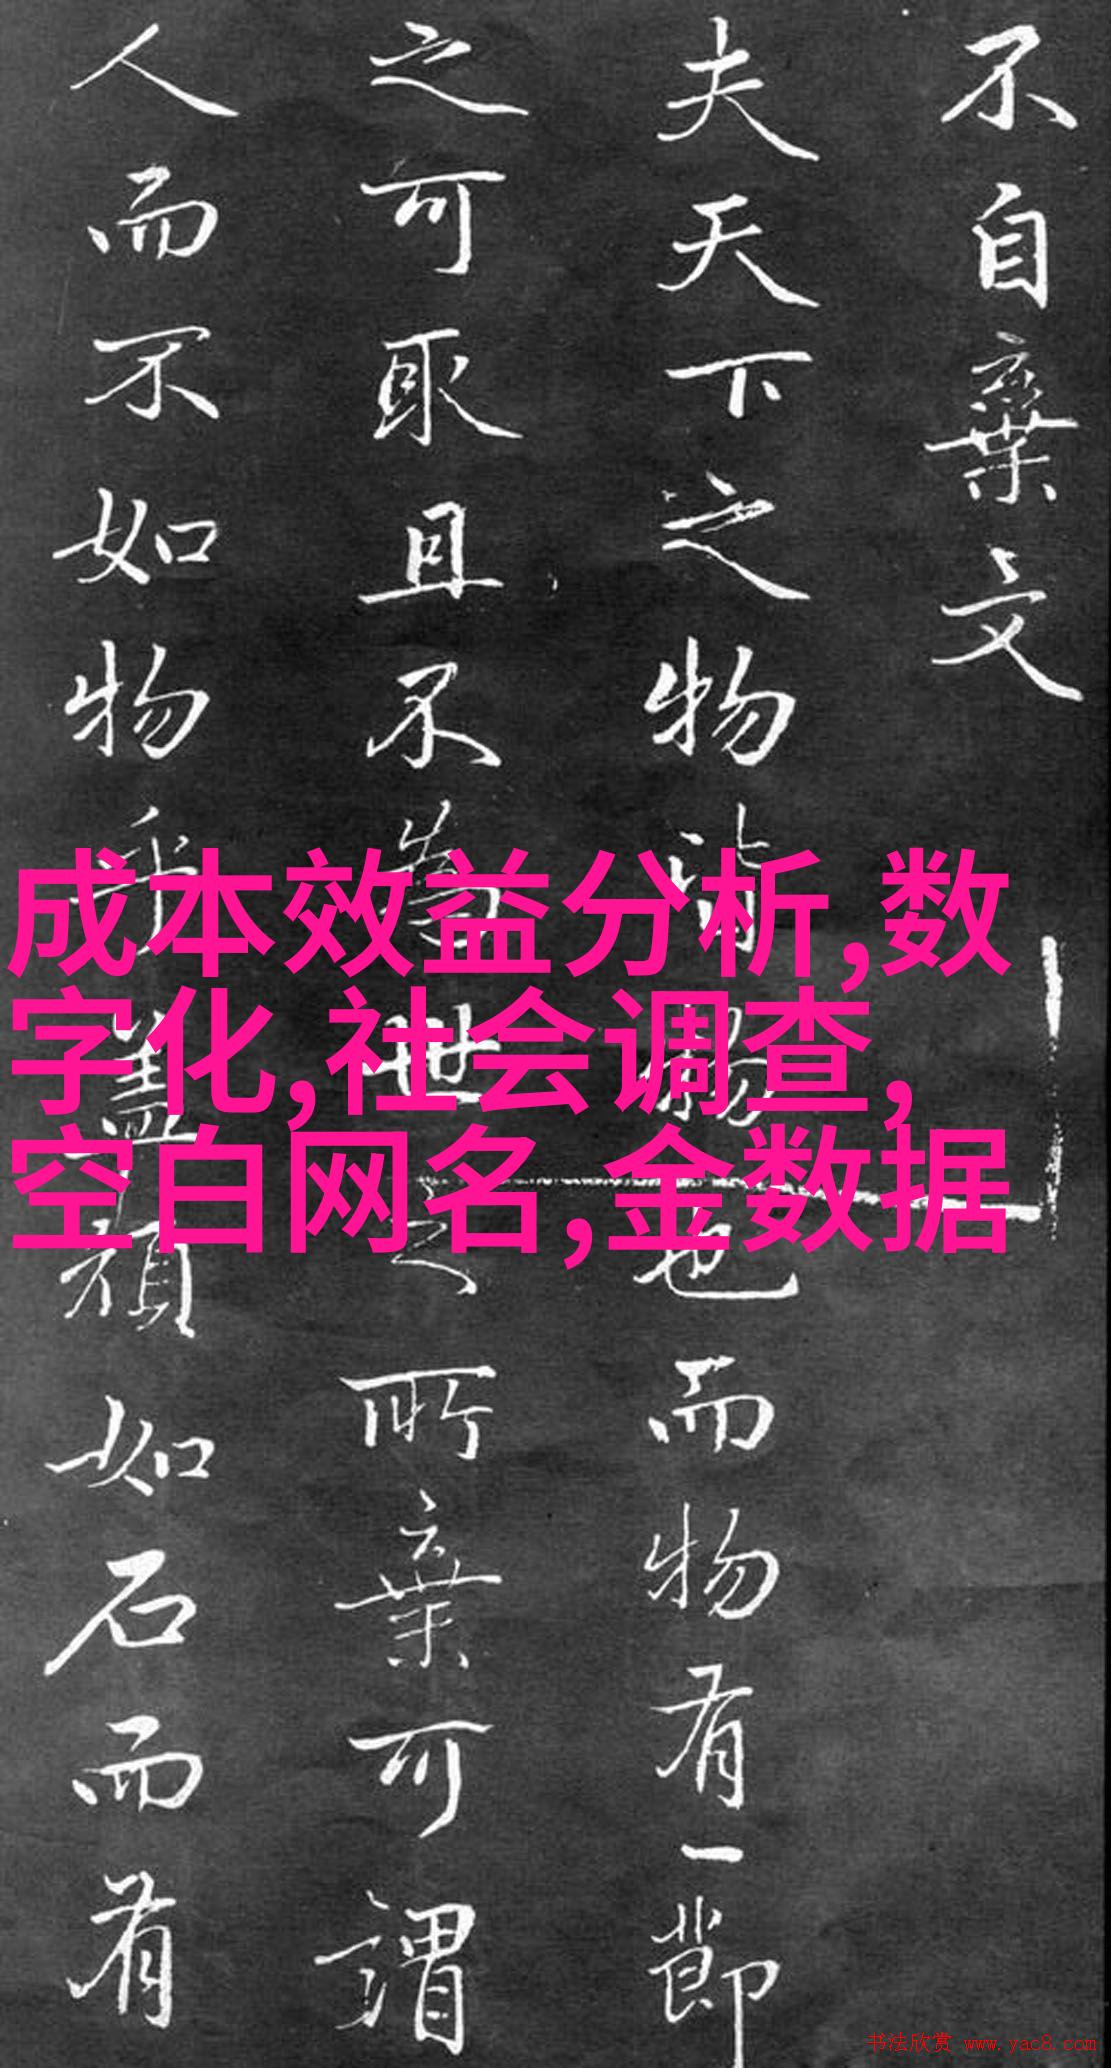 不自棄文
夫天下之物皆物也而物有一節
之可取且不為世之所棄可謂
人而不如物乎蓋頑如石而有
成本效益分析,数
字化,社会调查,
空白网名,金数据
书法欣赏 www.yac8.com